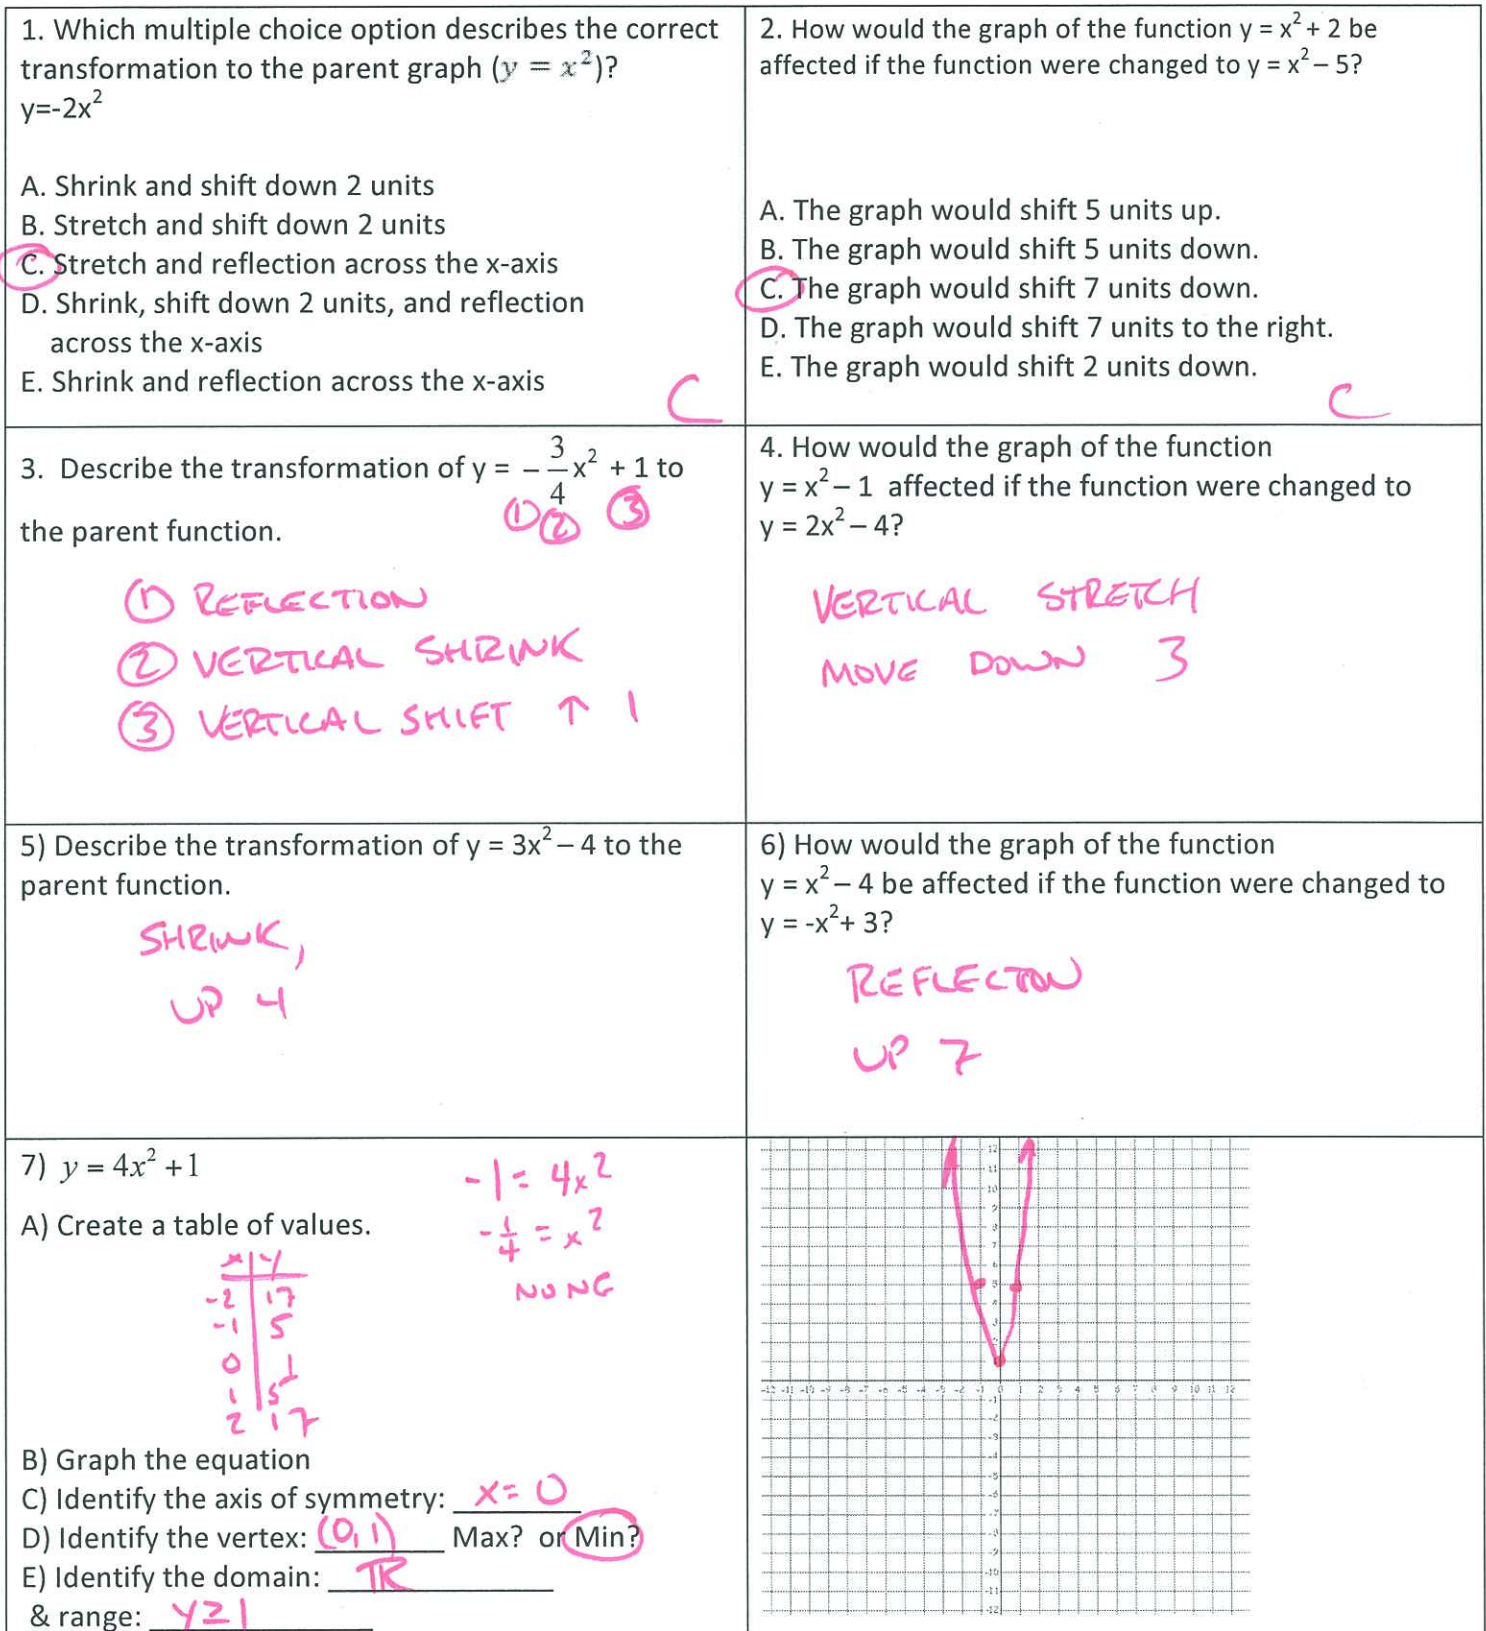 1. Which multiple choice option describes the correct
transformation to the parent graph (y = x²)?
y=-2x²
A. Shrink and shift down 2 units
B. Stretch and shift down 2 units
C. Stretch and reflection across the x-axis
D. Shrink, shift down 2 units, and reflection
across the x-axis
E. Shrink and reflection across the x-axis
C
2. How would the graph of the function y = x² + 2 be
affected if the function were changed to y = x² – 5?
A. The graph would shift 5 units up.
B. The graph would shift 5 units down.
C. The graph would shift 7 units down.
D. The graph would shift 7 units to the right.
E. The graph would shift 2 units down.
C
3. Describe the transformation of y = -3/4x² + 1 to
the parent function.
① ② ③
① REFLECTION
② VERTICAL SHRINK
③ VERTICAL SHIFT ↑ 1
4. How would the graph of the function
y = x² – 1 affected if the function were changed to
y = 2x² – 4?
VERTICAL STRETCH
MOVE DOWN 3
5) Describe the transformation of y = 3x² – 4 to the
parent function.
SHRINK,
UP 4
6) How would the graph of the function
y = x² – 4 be affected if the function were changed to
y = -x² + 3?
REFLECTON
UP 7
7) y = 4x² + 1
-1 = 4x²
-1/4 = x²
NONE
A) Create a table of values.
x y
-2 17
-1 5
0 1
1 5
2 17
B) Graph the equation
C) Identify the axis of symmetry: x = 0
D) Identify the vertex: (0, 1) Max? or Min?
E) Identify the domain: ℝ
& range: y ≥ 1